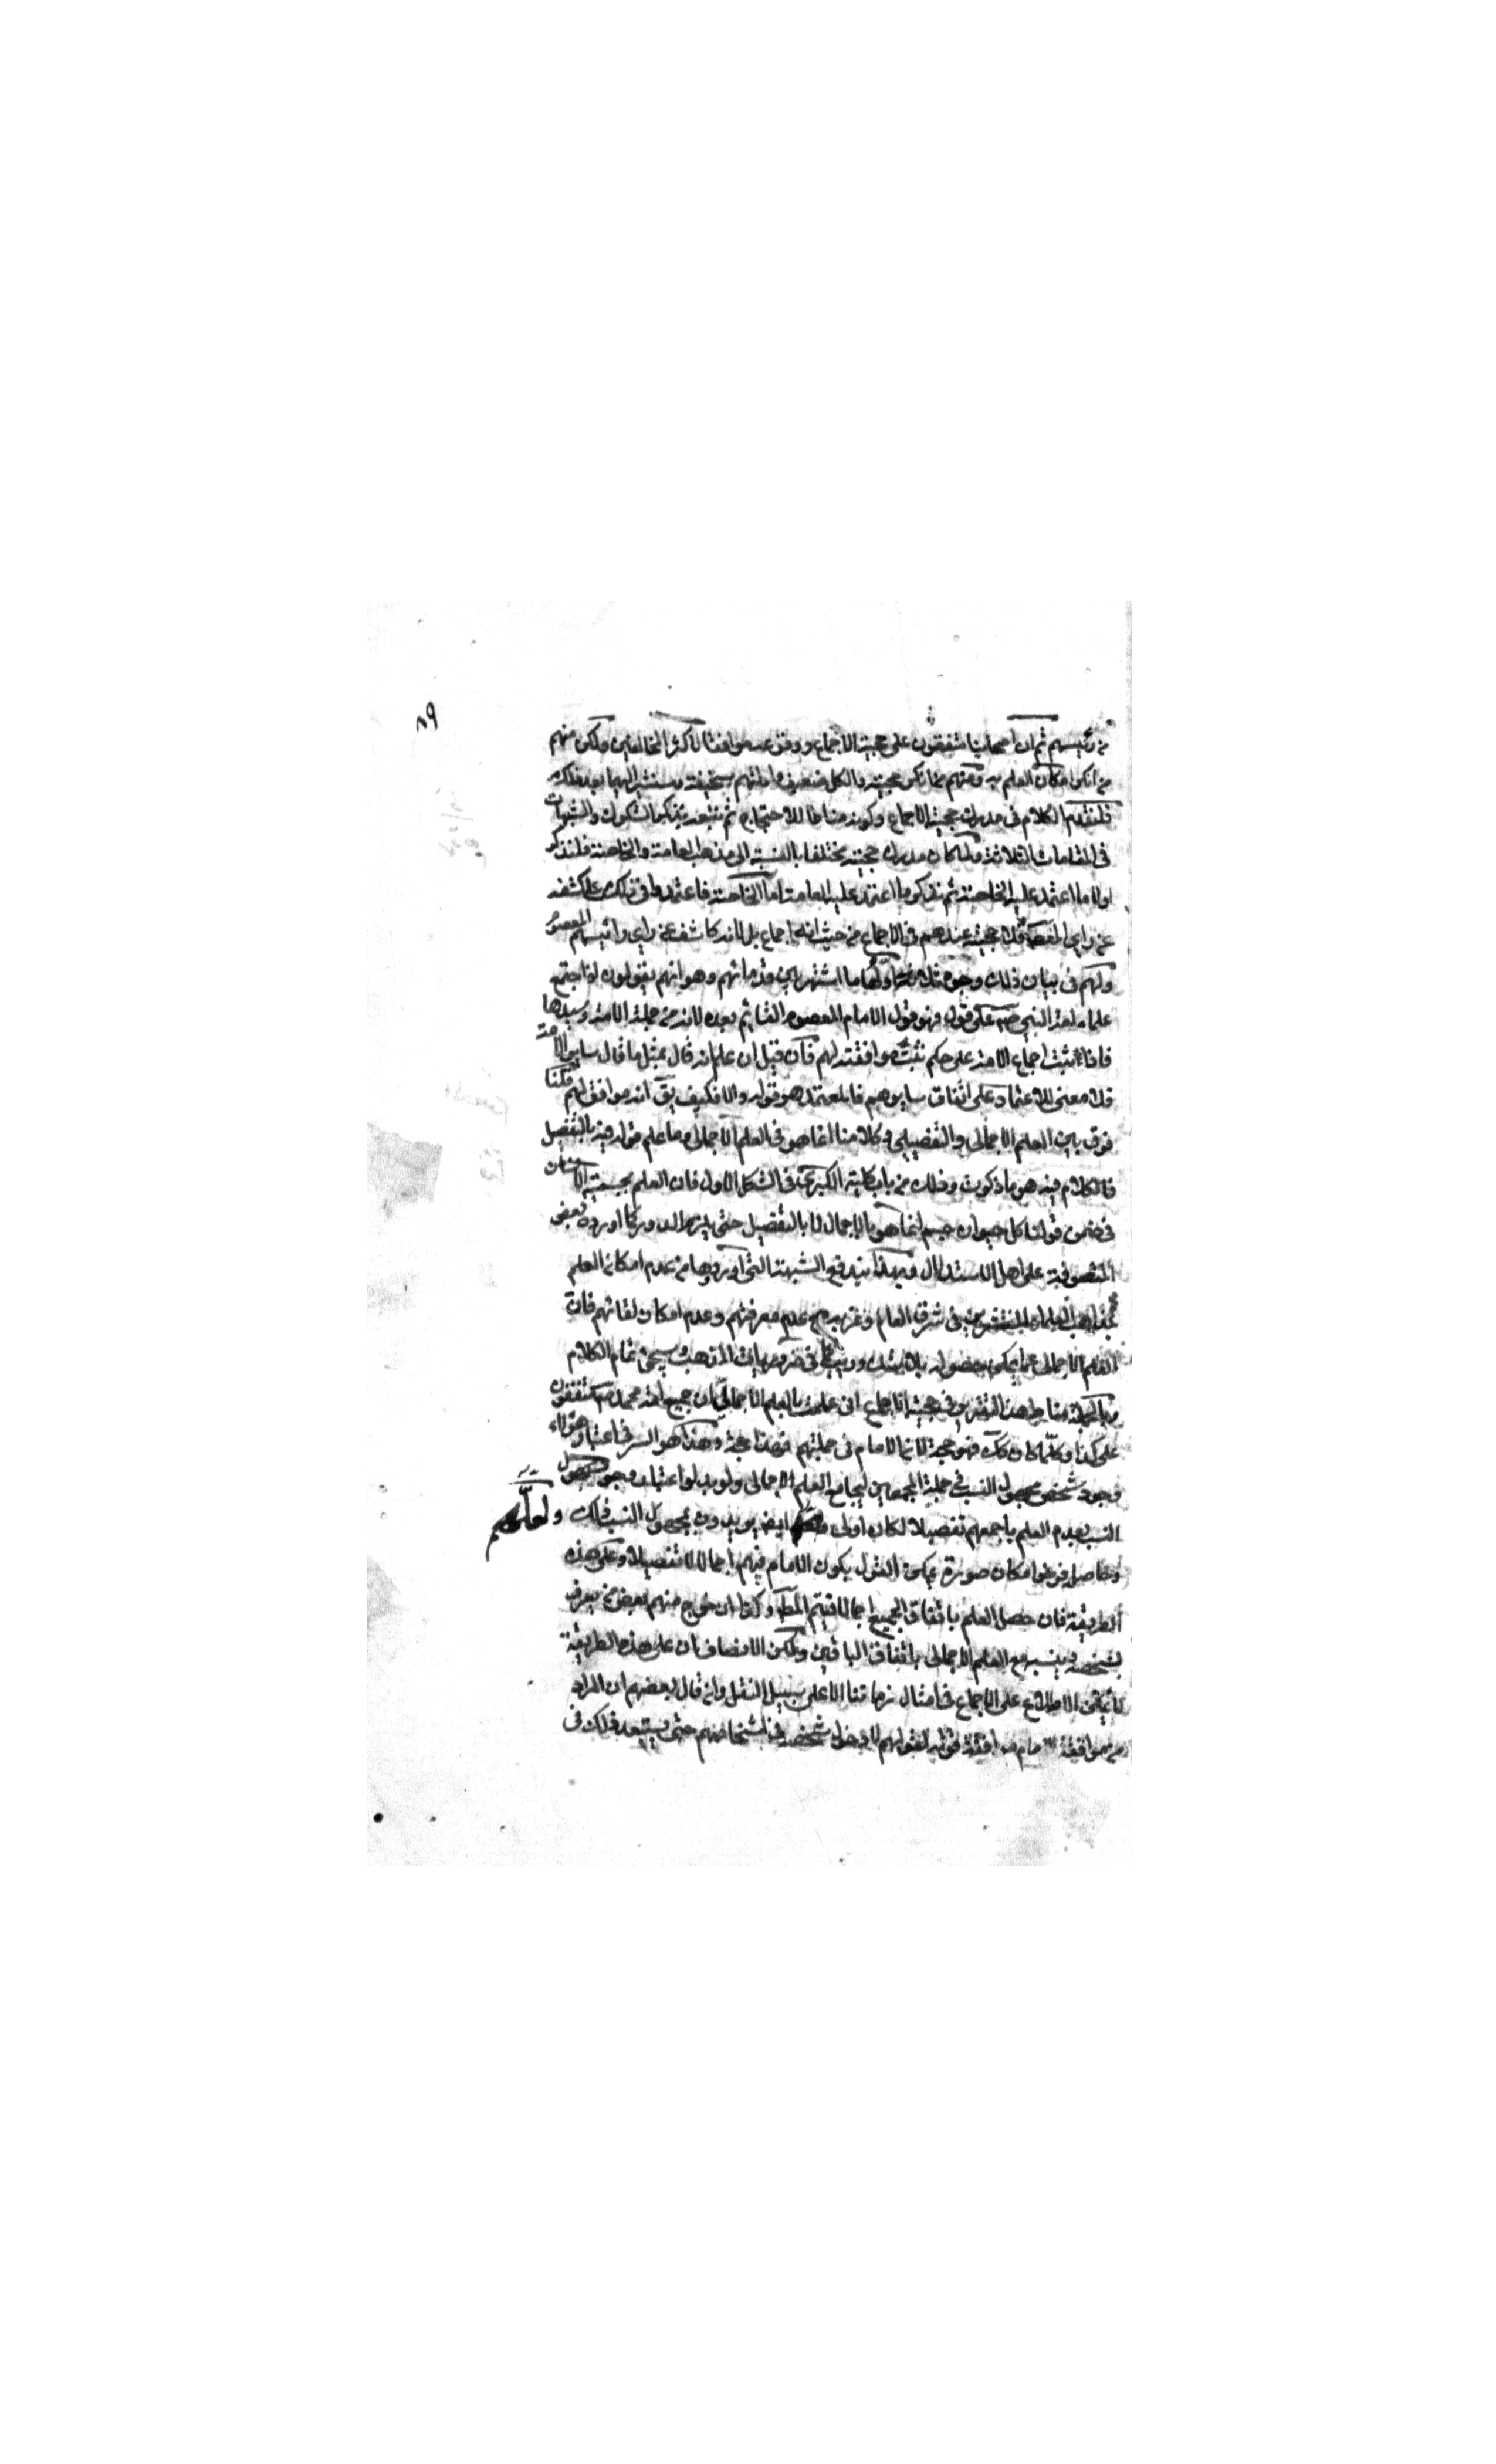 ٨٩
من رئيسهم ثم ان اصحابنا متفقون على حجية الاجماع ووقوعه موافقا لاكثر المخالفين ولكن منهم
من انكر امكان العلم به ومنهم من انكر حجيته والكل ضعيف وادلتهم سخيفة وسنشير اليها بعد ذلك
فلنقدم الكلام فى مدرك حجية الاجماع وكونه مناطا للاحتجاج ثم نتبعه بذكر الشكوك والشبهات
فى المقامات الثلاثة ولما كان مدرك حجيته مختلفا بالنسبة الى مذهب العامة والخاصة فلنذكر
اولا ما اعتمد عليه الخاصة ثم نذكر ما اعتمد عليه العامة اما الخاصة فاعتمدوا فى ذلك على كشفه
عن راى المعصوم فلا حجية عندهم فى الاجماع من حيث انه اجماع بل لانه كاشف عن راى رائيسهم المعصوم
ولهم فى بيان ذلك وجوه ثلاثة اولها ما اشتهر بين قدمائهم وهو انهم يقولون اذا اجتمع
علماء امة النبى ص على قول فهو قول الامام المعصوم القائم بعده لانه من جملة الامة وسيدها
فاذا ثبت اجماع الامة على حكم ثبت موافقته لهم فان قيل ان علم انه قال بمثل ما قال ساير الامة
فلا معنى للاعتماد على اتفاق سايرهم فالمعتمد هو قوله والا فكيف يق انه موافق لهم قلنا
فرق بين العلم الاجمالى والتفصيلى وكلامنا انما هو فى العلم الاجمالى وما علم قوله فيه بالتفصيل
فالكلام فيه هو ما ذكرت وذلك من باب كلية الكبرى فى الشكل الاول فان العلم بجسمية الانسان
فى ضمن قولنا كل حيوان جسم انما هو بالاجمال لا بالتفصيل حتى يلزم الدور كما اورده بعض
المتصوفة على اهل الاستدلال وبهذا يندفع الشبهة التى اوردوها من عدم امكان العلم
بمذاهب العلماء المنتشرين فى شرق العالم وغربه من عدم معرفتهم وعدم امكان لقائهم فان
العلم الاجمالى مما يمكن حصوله بلا شك وريب كما فى ضروريات المذهب وسيجئ تمام الكلام
وبالجملة مناط هذا التقرير فى حجية الاجماع انى علمت بالعلم الاجمالى ان جميع امة محمد ص متفقون
على كذا وكلما كان كك فهو حجة لان الامام فى جملتهم فهذا حجة وهذا هو السر فى اعتبار هؤلاء
وجود شخص مجهول النسب فى جملة المجمعين ليجامع العلم الاجمالى ولو بدلوا اعتبار وجود مجهول
النسب بعدم العلم باجمعهم تفصيلا لكان اولى ولعلهم ايضا يريدون بمجهول النسب ذلك ولعلهم
وحاصله فرض امكان صورة يمكن القول بكون الامام فيهم اجمالا لا تفصيلا وعلى هذه
الطريقة فان حصل العلم باتفاق الجميع اجمالا فيتم المط وكذا ان خرج منهم بعض من يعرف
بشخصه ونسبه مع العلم الاجمالى باتفاق الباقين ولكن الانصاف ان على هذه الطريقة
لا يمكن الاطلاع على الاجماع فى امثال زماننا الا على سبيل النقل وان قال بعضهم ان المراد
من موافقة الامام موافقة قوله لقولهم لا دخول شخصه فى اشخاصهم حتى يستبعد ذلك فى